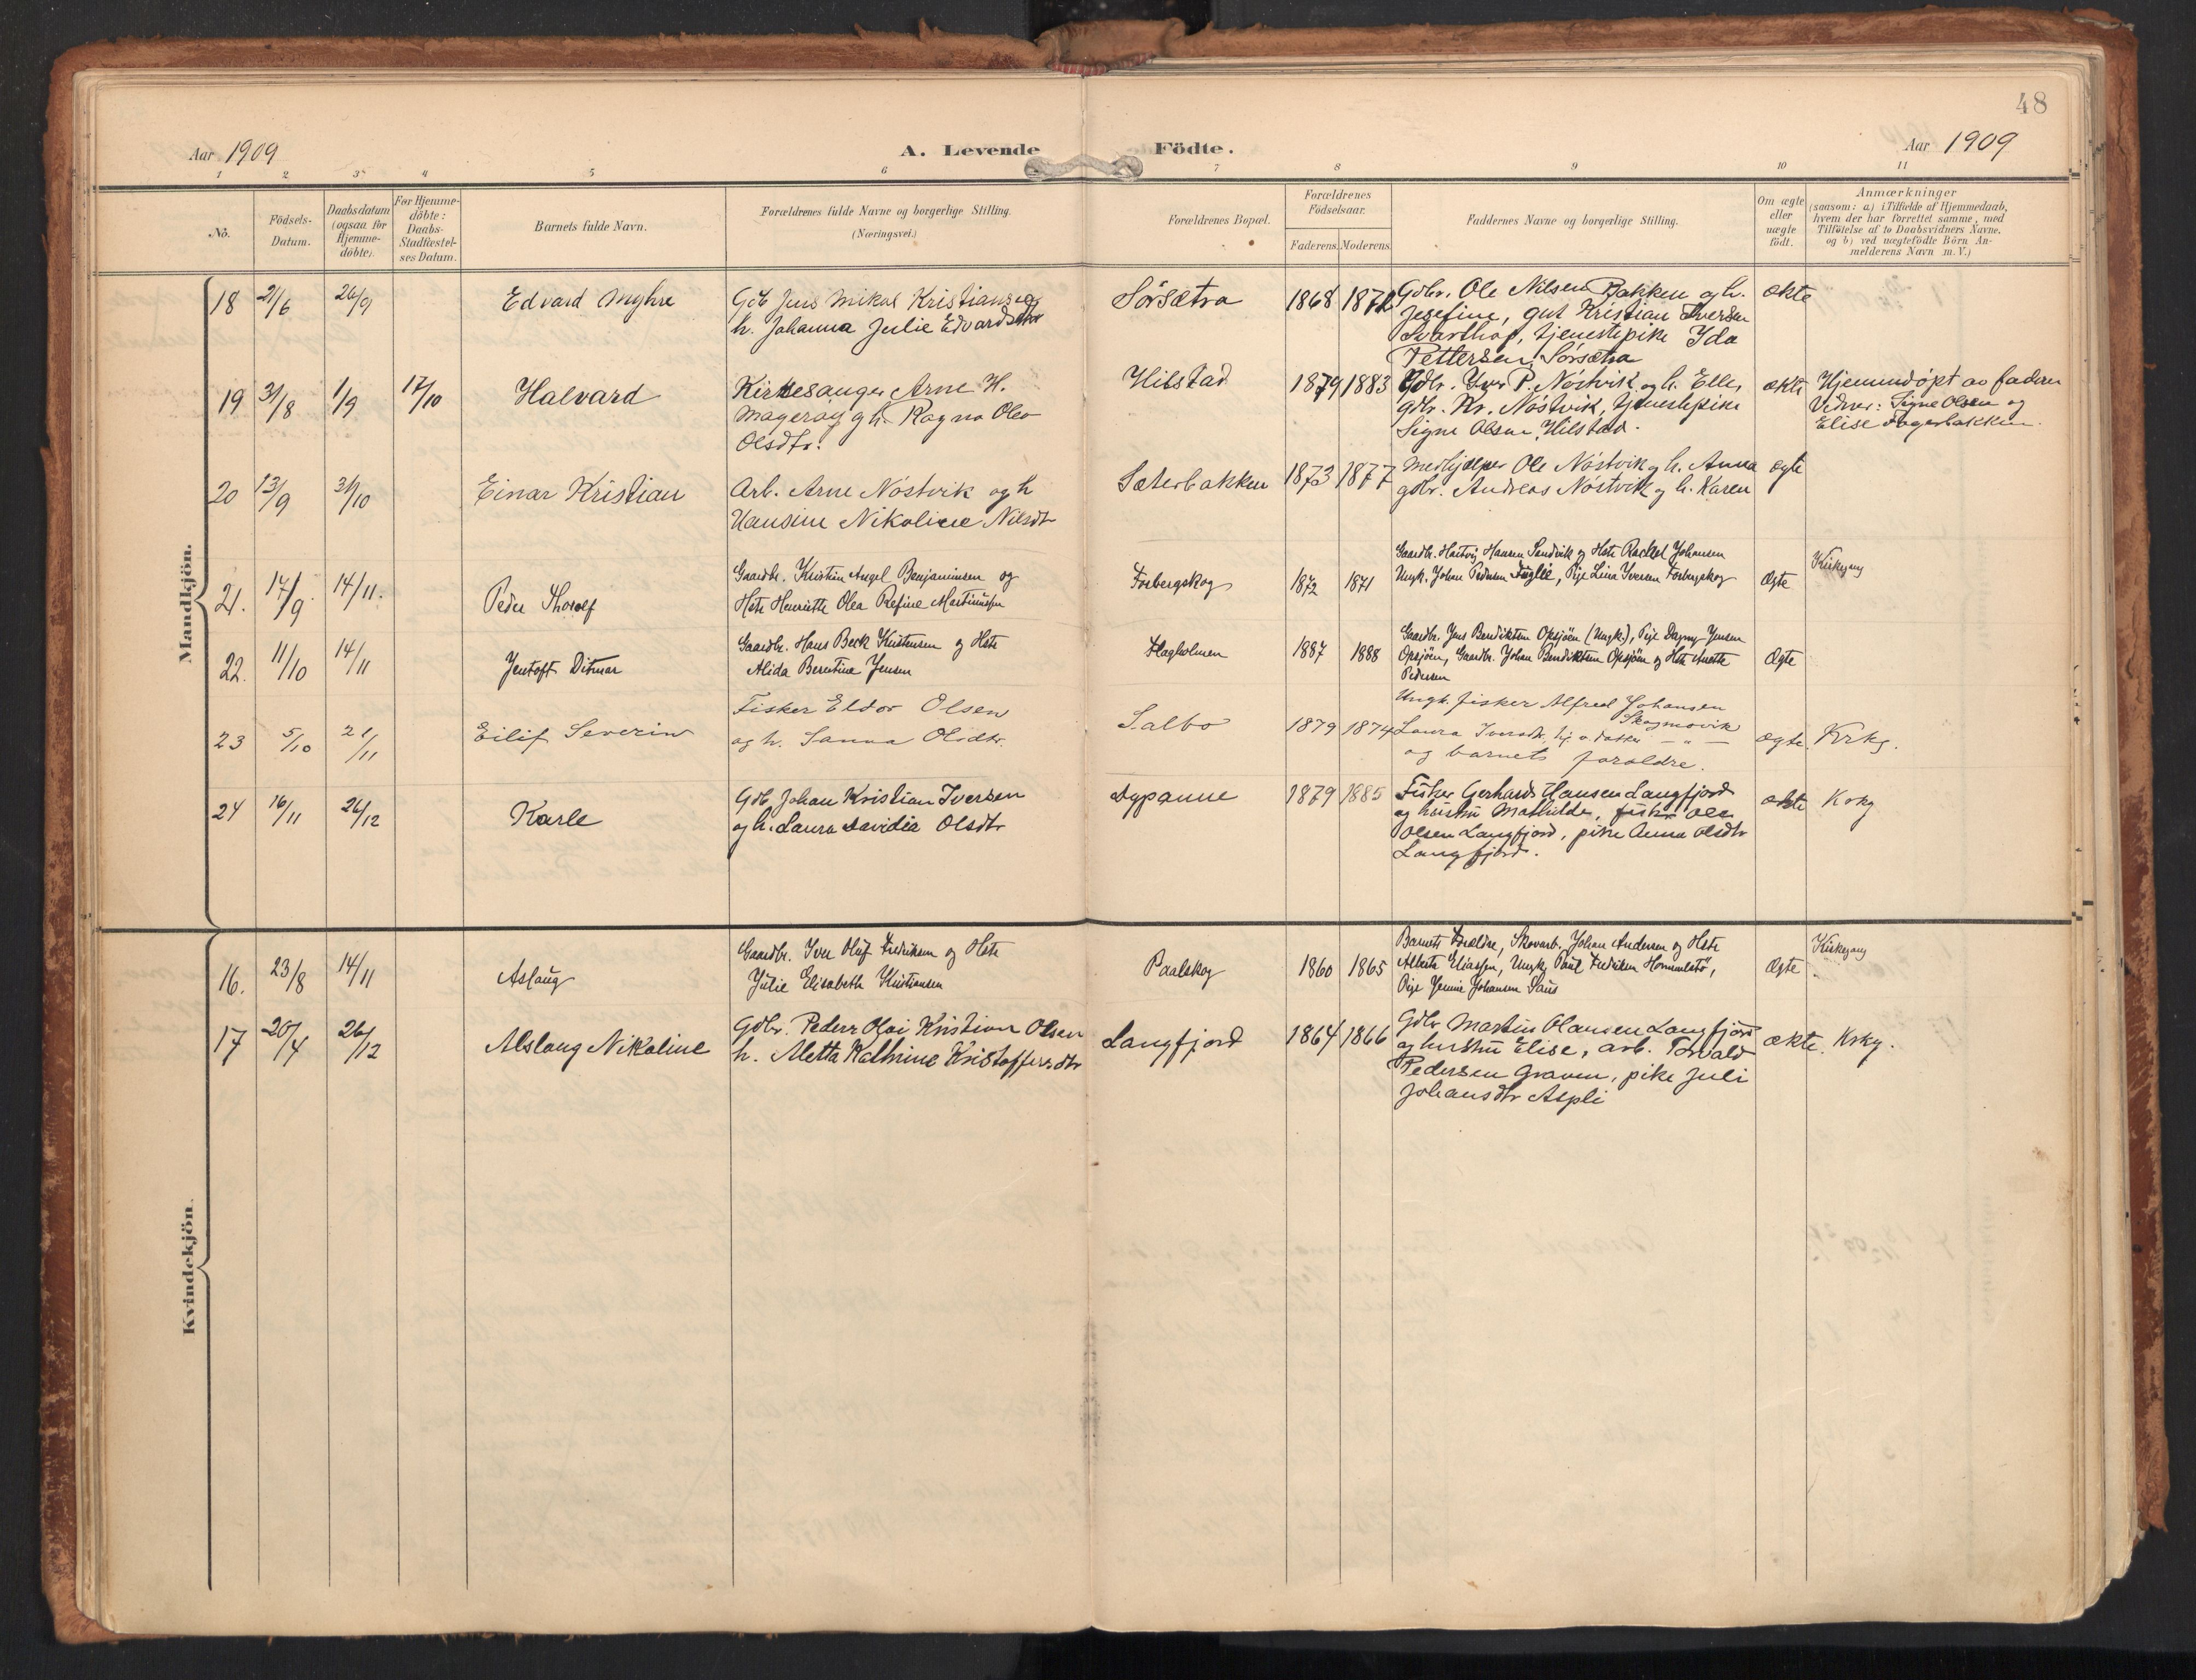 48
Aar 1909
A. Levende Födte.
Aar 1909
1 2 3 4 5 6 7 8 9 10 11
No.
Födsels-
Datum.
Daabsdatum
(ogsaa for
Hjemme-
döbte).
For Hjemme-
döbte:
Daabs-
Stadfæstel-
ses Datum.
Barnets fulde Navn.
Forældrenes fulde Navne og borgerlige Stilling.
(Næringsvei.)
Forældrenes Bopæl.
Forældrenes
Födselsaar.
Faderens. Moderens.
Faddernes Navne og borgerlige Stilling.
Om ægte
eller
uægte
födt.
Anmærkninger
(saasom: a) i Tilfælde af Hjemmedaab,
hvem der har forrettet samme, med
Tilföielse af to Daabsvidners Navne,
og b) ved uægtefödte Börn An-
melderens Navn m. V.)
Mandkjön.
18 21/6 26/9 Edvard Myhre
Gdb Jens Mikal Kristiansen og
h. Johanna Julie Edvardsdtr
Sörsætra 1868
Gdbr. Ole Nilsen Bakken og h.
Jesefine, gut Kristian Iversen
Svarthop, tjenestepike Ida
Pettersen Sörsætra
ekte
19 31/8 1/9 17/10 Halvard
Kirkesanger Arne H.
Mageröy g h. Ragna Olea
Olsdtr.
Hilstad 1879 1883
Gdbr. Iver P. Nöstvik og h. Elle,
gdbr. Kr. Nöstvik, tjenestepike
Signe Olsen, Hilstad.
ekte
Hjemmedöpt av faderen
Vidner: Signe Olsen og
Elise Fagerbakken.
20 13/9 31/10 Einar Kristian
Arb. Arne Nöstvik og h
Hansine Nikoline Nilsdtr
Sæterbakken 1873 1877
Medhjælper Ole Nöstvik og h. Anna
gdbr. Andreas Nöstvik og h. Karen
egte
21. 17/9 14/11. Peder Thorolf
Gaardbr. Kristian Angel Benjaminsen og
Hstr Henriette Olea Refine Martinussen
Forbergskog 1872 1871
Gaardbr. Hartvig Hansen Sandvik og Hstr Rachel Johansen
Ungk. Johan Pedersen Fuglie, Pige Lina Iversen Forbergskog
Ægte
Kirkegang
22. 11/10 14/11 Jentoft Ditmar
Gaardbr. Hans Beck Kristensen og Hstr
Alida Berntine Jensen
Flagholmen 1887 1888
Gaardbr. Jens Bendiktsen Opsjöen (Ungk.), Pige Dagny Jensen
Opsjöen, Gaardbr. Johan Bendiktsen Opsjöen og Hstr Anette
Pedersen
Ægte
23 5/10 21/11 Eilif Severin
Fisker Eldor Olsen
og h. Sanna Olsdtr.
Salbo 1879 1874
Ungk. fisker Alfred Johansen
Skogmovik
Laura Iversdtr,
og barnets foreldre.
ægte. Krkg.
24 16/11 26/12 Karle
Gdb Johan Kristian Iversen
og h. Laura Davidia Olsdtr
Dypanne 1879 1885
Fisker Gerhard Hansen Langfjord
og hustru Mathilde, fisker Ole
Olsen Langfjord, pike Anna Olsdtr
Langfjord.
ekte Krkg
Kvindekjön.
16. 23/8 14/11 Aslaug
Gaardbr. Iver Oluf Fredriksen og Hstr
Julie Elisabeth Kristiansen
Paalskog 1860 1865
Barnets Forældre, Skovarb. Johan Andersen og Hstr
Alberta Eliassen, Ungk Paul Fredriksen Hommelstö,
Pige Jennie Johansen Saus
Ægte
Kirkegang
17 20/4 26/12 Alslaug Nikoline
Gdbr. Peder Olai Kristian Olsen
h. Aletta Kathrine Kristoffersdtr
Langfjord 1864 1866
Gdbr Martin Olausen Langfjord
og hustru Elise, arb. Torvald
Pedersen Graven, pike Juli
Johansdtr Aspli
ekte. Krkg.